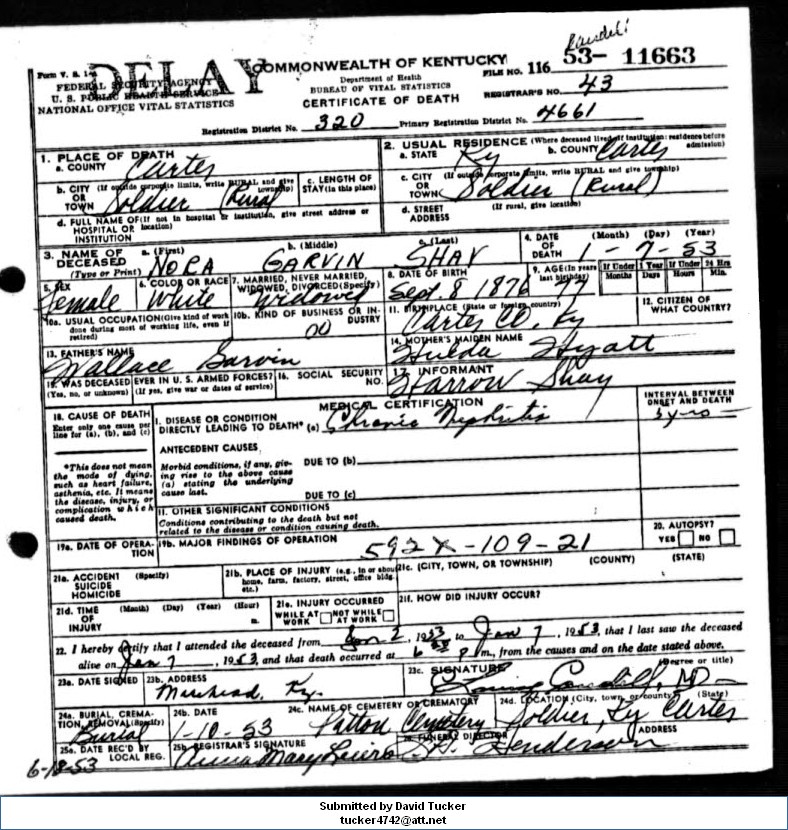 DELAY
Form V. S. 1-A
FEDERAL SECURITY AGENCY
U. S. PUBLIC HEALTH SERVICE
NATIONAL OFFICE VITAL STATISTICS
COMMONWEALTH OF KENTUCKY
Department of Health
BUREAU OF VITAL STATISTICS
CERTIFICATE OF DEATH
FILE NO. 116 53- 11663
REGISTRAR'S NO. 43
Registration District No. 320 Primary Registration District No. 4661
1. PLACE OF DEATH
a. COUNTY Carter
2. USUAL RESIDENCE (Where deceased lived, if institution: residence before admission)
a. STATE Ky b. COUNTY Carter
b. CITY OR TOWN (If outside corporate limits, write RURAL and give township) Soldier (Rural
c. LENGTH OF STAY (in this place)
c. CITY OR TOWN (If outside corporate limits, write RURAL and give township) Soldier (Rural)
d. FULL NAME OF HOSPITAL OR INSTITUTION (If not in hospital or institution, give street address or location)
d. STREET ADDRESS (If rural, give location)
3. NAME OF DECEASED (Type or Print)
a. (First) NORA b. (Middle) GARVIN c. (Last) SHAY
4. DATE OF DEATH (Month) (Day) (Year) 1-7-53
5. SEX Female
6. COLOR OR RACE White
7. MARRIED, NEVER MARRIED, WIDOWED, DIVORCED (Specify) Widowed
8. DATE OF BIRTH Sept. 8 1876
9. AGE (In years last birthday) If Under 1 Year Months Days If Under 24 Hrs Hours Min.
10a. USUAL OCCUPATION (Give kind of work done during most of working life, even if retired)
10b. KIND OF BUSINESS OR INDUSTRY 00
11. BIRTHPLACE (State or foreign country) Carter Co, Ky
12. CITIZEN OF WHAT COUNTRY?
13. FATHER'S NAME Wallace Garvin
14. MOTHER'S MAIDEN NAME Hulda Hyatt
15. WAS DECEASED EVER IN U. S. ARMED FORCES? (Yes, no, or unknown) (If yes, give war or dates of service)
16. SOCIAL SECURITY NO.
17. INFORMANT Shay
MEDICAL CERTIFICATION
INTERVAL BETWEEN ONSET AND DEATH
18. CAUSE OF DEATH
Enter only one cause per line for (a), (b), and (c)
I. DISEASE OR CONDITION DIRECTLY LEADING TO DEATH* (a) Chronic Nephritis
*This does not mean the mode of dying, such as heart failure, asthenia, etc. It means the disease, injury, or complication which caused death.
ANTECEDENT CAUSES
Morbid conditions, if any, giving rise to the above cause (a) stating the underlying cause last.
DUE TO (b)
DUE TO (c)
II. OTHER SIGNIFICANT CONDITIONS
Conditions contributing to the death but not related to the disease or condition causing death.
19a. DATE OF OPERATION
19b. MAJOR FINDINGS OF OPERATION
592X-109-21
20. AUTOPSY?
YES NO
21a. ACCIDENT SUICIDE HOMICIDE (Specify)
21b. PLACE OF INJURY (e.g., in or about home, farm, factory, street, office bldg. etc.)
21c. (CITY, TOWN, OR TOWNSHIP) (COUNTY) (STATE)
21d. TIME OF INJURY (Month) (Day) (Year) (Hour) m.
21e. INJURY OCCURRED
WHILE AT WORK NOT WHILE AT WORK
21f. HOW DID INJURY OCCUR?
22. I hereby certify that I attended the deceased from Jan 2, 1953 to Jan 7, 1953, that I last saw the deceased
alive on Jan 7, 1953, and that death occurred at m., from the causes and on the date stated above.
23a. DATE SIGNED
23b. ADDRESS Morehead, Ky.
23c. SIGNATURE (Degree or title) MD
24a. BURIAL, CREMATION, REMOVAL (Specify) Burial
24b. DATE 1-10-53
24c. NAME OF CEMETERY OR CREMATORY Patton Cemetery
24d. LOCATION (City, town, or county) (State) Soldier, Ky Carter
25a. DATE REC'D BY LOCAL REG. 6-18-53
25b. REGISTRAR'S SIGNATURE Anna Mary
FUNERAL DIRECTOR Henderson ADDRESS
Submitted by David Tucker
tucker4742@att.net